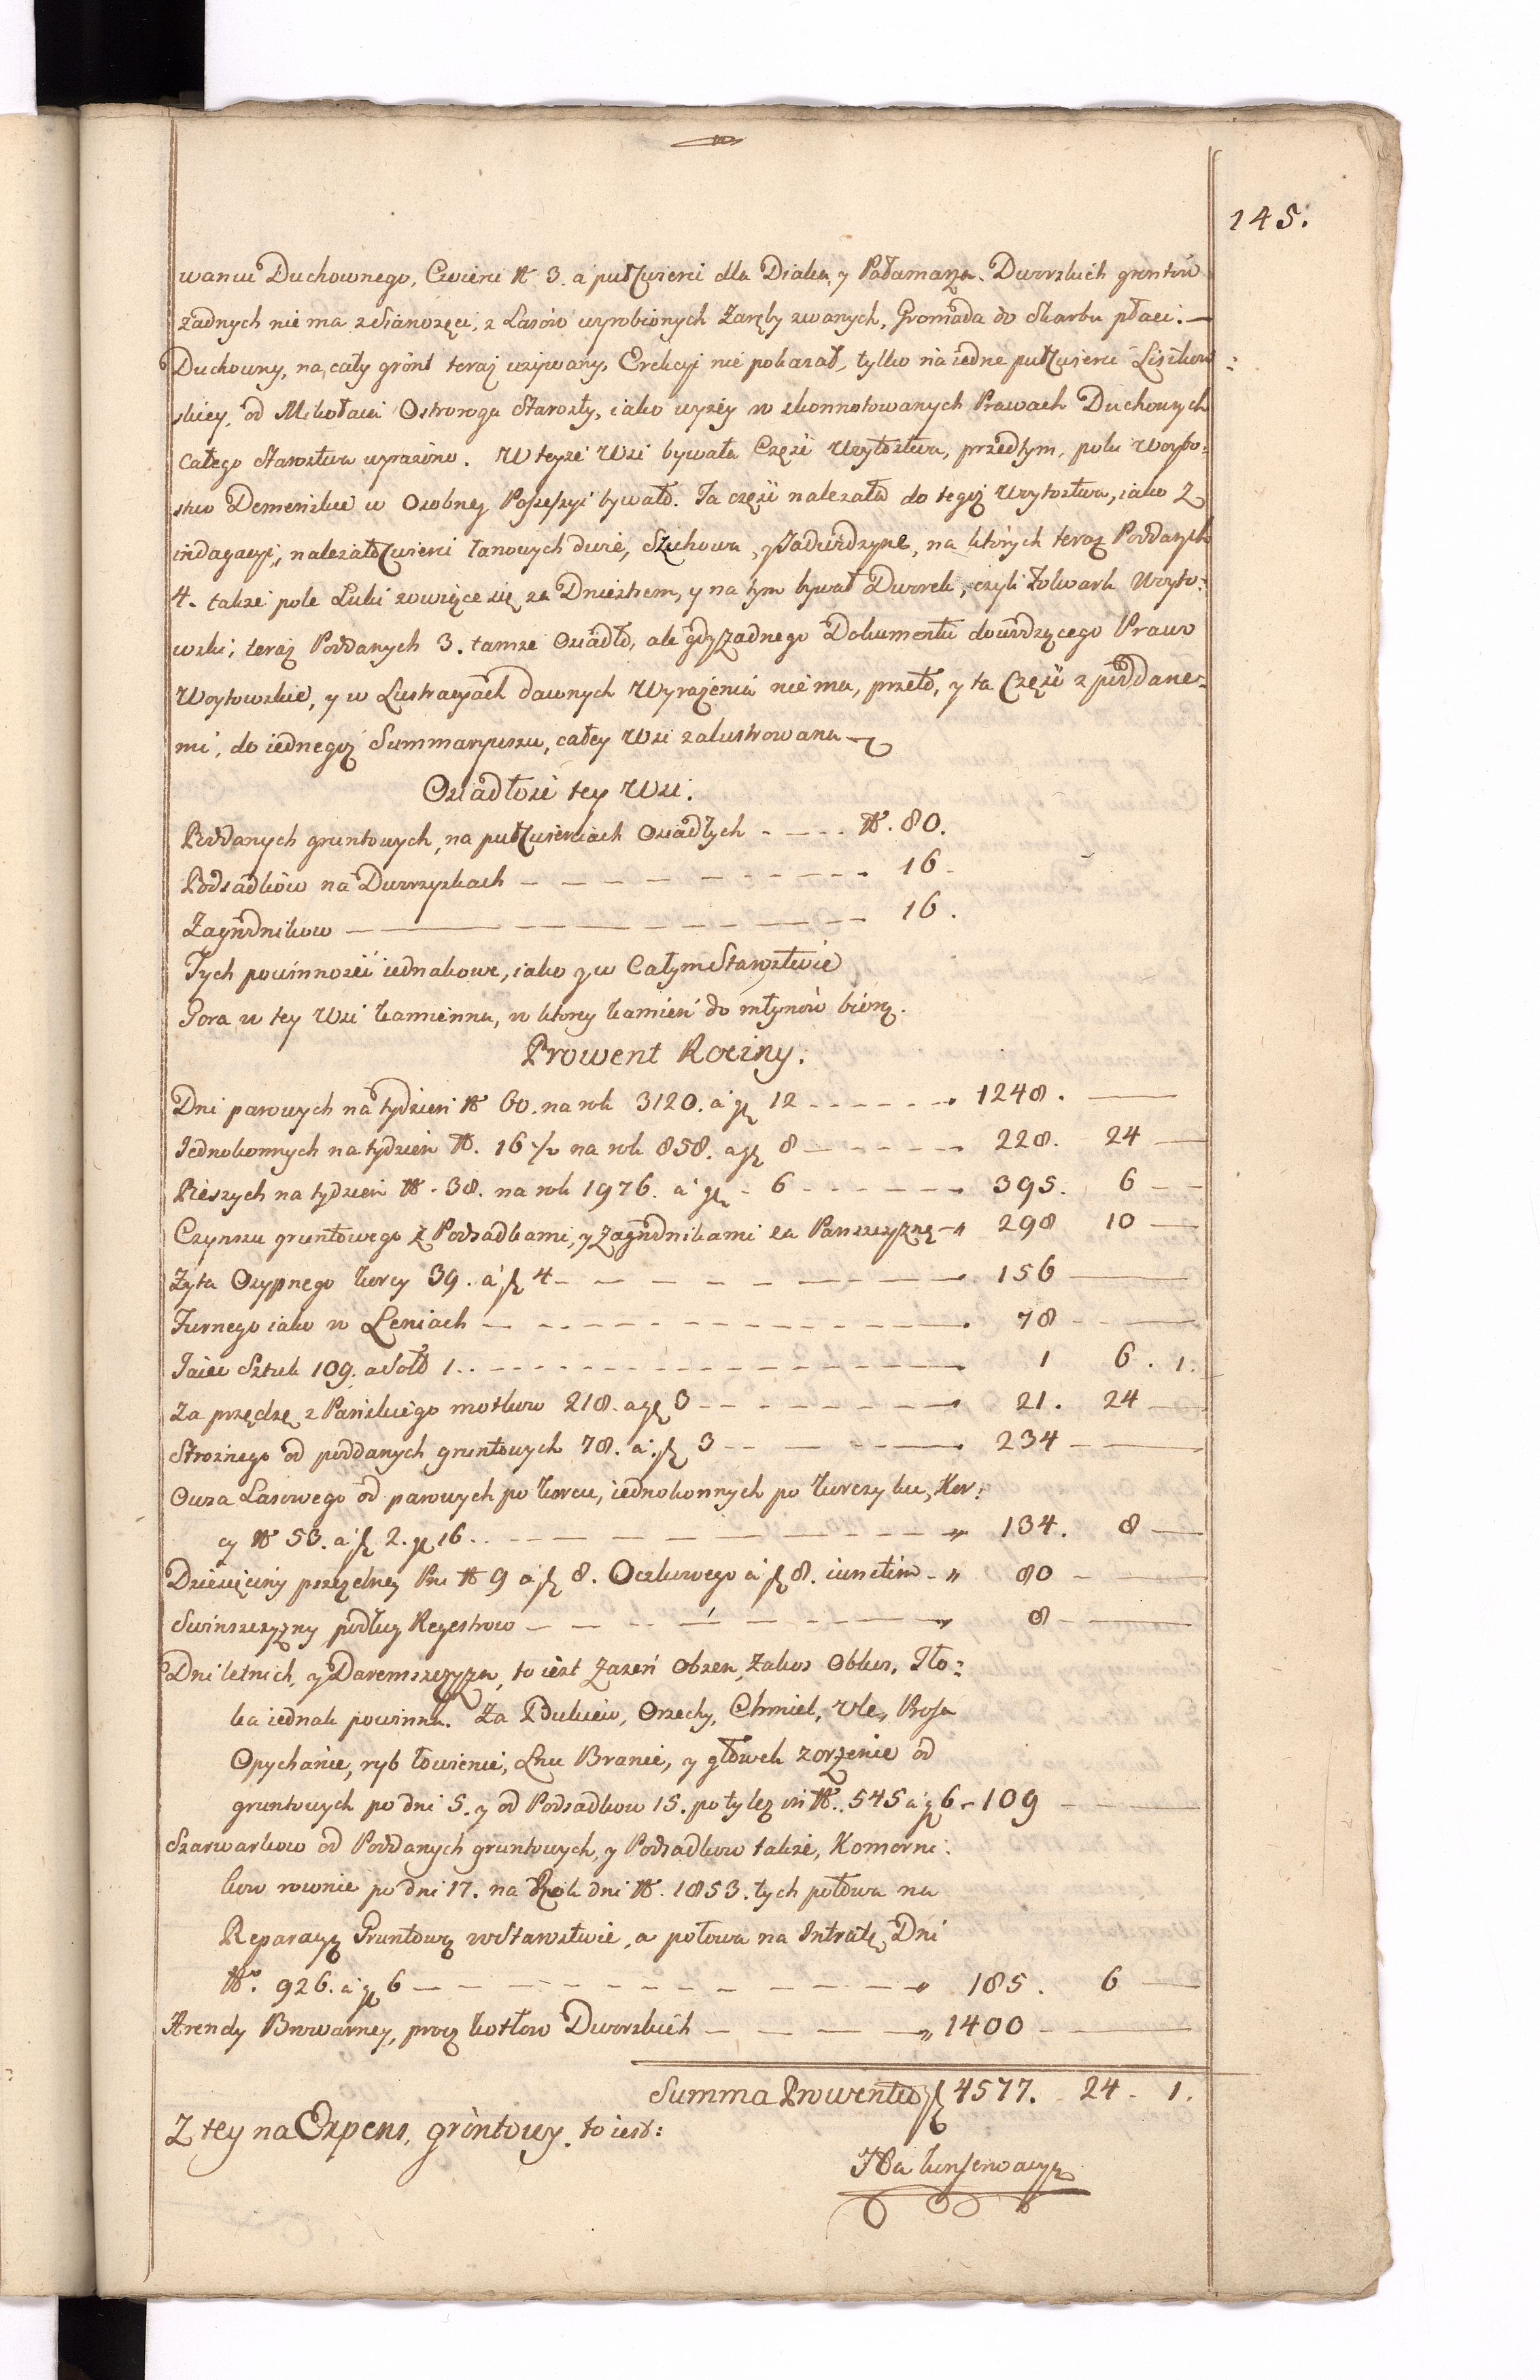 145.
waniu Duchownego, Cwierci N 3. a pułCwierci dla Diaka, y Pałamarza. Dworskich gruntów
żadnych nie ma z Sianożęci, z Lasów wyrobionych Zaręby zwanych, Gromada do Skarbu płaci. —
Duchowny, na cały grónt teraz użiwany, Erekcyi nie pokazał, tylko na iedne pułCwierci Lisików:
skiey, od Mikołaia Ostroroga Starosty, iako wyżey w skonnotowanych Prawach Duchownych
całego Starostwa wyrażóno. W teyże Wsi bywała Część Woytostwa, przedtym, poki Woyto:
stwo Demeńskie w Osobney Possessyi bywało. Ta część należała do tegoż Woytostwa, iako z
indagacyi, należało Cwierci łanowych dwie, Szuchowa, y Jadwidzyne, na których teraz Poddanych
4. także pole Łuki zowiące się za Dniestrem, y na tym bywał Dworek, czyli Folwark Woyto:
wski, teraz Poddanych 3. tamże Osiadło, ale gdy żadnego Dokumentu dowodzącego Prawo
Woytowskie, y w Lustracyach dawnych Wyrażenia nie ma, przeto, y ta Część z poddane:
mi, do iednegoż Summaryuszu, całey Wsi zalustrowana
Osiadłość tey Wsi.
Poddanych gruntowych, na pułCwierciach Osiadłych - - - - N. 80.
Podsadków na Dworzyskach - - - - - - - - - 16.
Zagrodników - - - - - - - - - 16.
Tych powinność iednakowe, iako y w Całym Starostwie
Gora w tey Wsi kamienna, w ktorey kamień do młynów biorą.
Prowent Roczny.
Dni parowych na tydzień N 60. na rok 3120. á gr 12 - - - - - - 1248. —
Jednokonnych na tydzien N. 16 1/2 na rok 858. a gr 8 - - - - - - 228. 24 —
Pieszych na tydzień N. 38. na rok 1976. á gr. 6 - - - - - - 395. 6 —
Czynszu gruntowego z Podsadkami, y Zagrodnikami za Panszczyznę - 298 10 —
Żyta Osypnego korcy 39. á f 4 - - - - - - - - 156 —
Furnego iako w Leniach - - - - - - - - - 78 - —
Jaiec Sztuk 109. a Soł 1. - - - - - - - - - 1 6. 1.
Za przędzę z Pańskiego motkow 218. a gr 3 - - - - - - 21. 24 —
Strożnego od poddanych gruntowych 78. á f 3 - - - - - 234 - —
Owsa Lasowego od parowych po korcu, iednokonnych po korczyku, Kor:
cy N 53. á f 2. gr 16. - - - - - - - - - 134. 8 —
Dziesięciny pszczelney Pni N 9 á f 8. Oczkowego á f 8. iunctim - 80 - —
Swinszczyzny podług Regestrow - - - - - - - - 8 - —
Dni letnich, y Daremszczyzn, to iest Zażeń Obżen, Zakos Obkos, Tło:
ka iednak powinna. Za Dukiew, Orzechy, Chmiel, Ule, Prosa
Opychanie, ryb łowienie, Lnu Branie, y głowek zorzenie od
gruntowych po dni 5. y od Podsadkow 15. po tylez dni N. 545 á gr 6 - 109 - —
Szarwarkow od Poddanych gruntowych, y Podsadkow także, Komorni:
kow rownie po dni 17. na Rok dni N. 1853. tych połowa na
Reparacyą Gruntową w Starostwie, a połowa na Intratę, Dni
N. 926. á gr 6 - - - - - - - - - 185. 6 —
Arendy Browarney, procz kotłow Dworskich - - - - 1400 - —
Summa Prowentu f 4577. 24 - 1.
Z tey na Expens, gróntowy, to iest:
Na konserwacyą